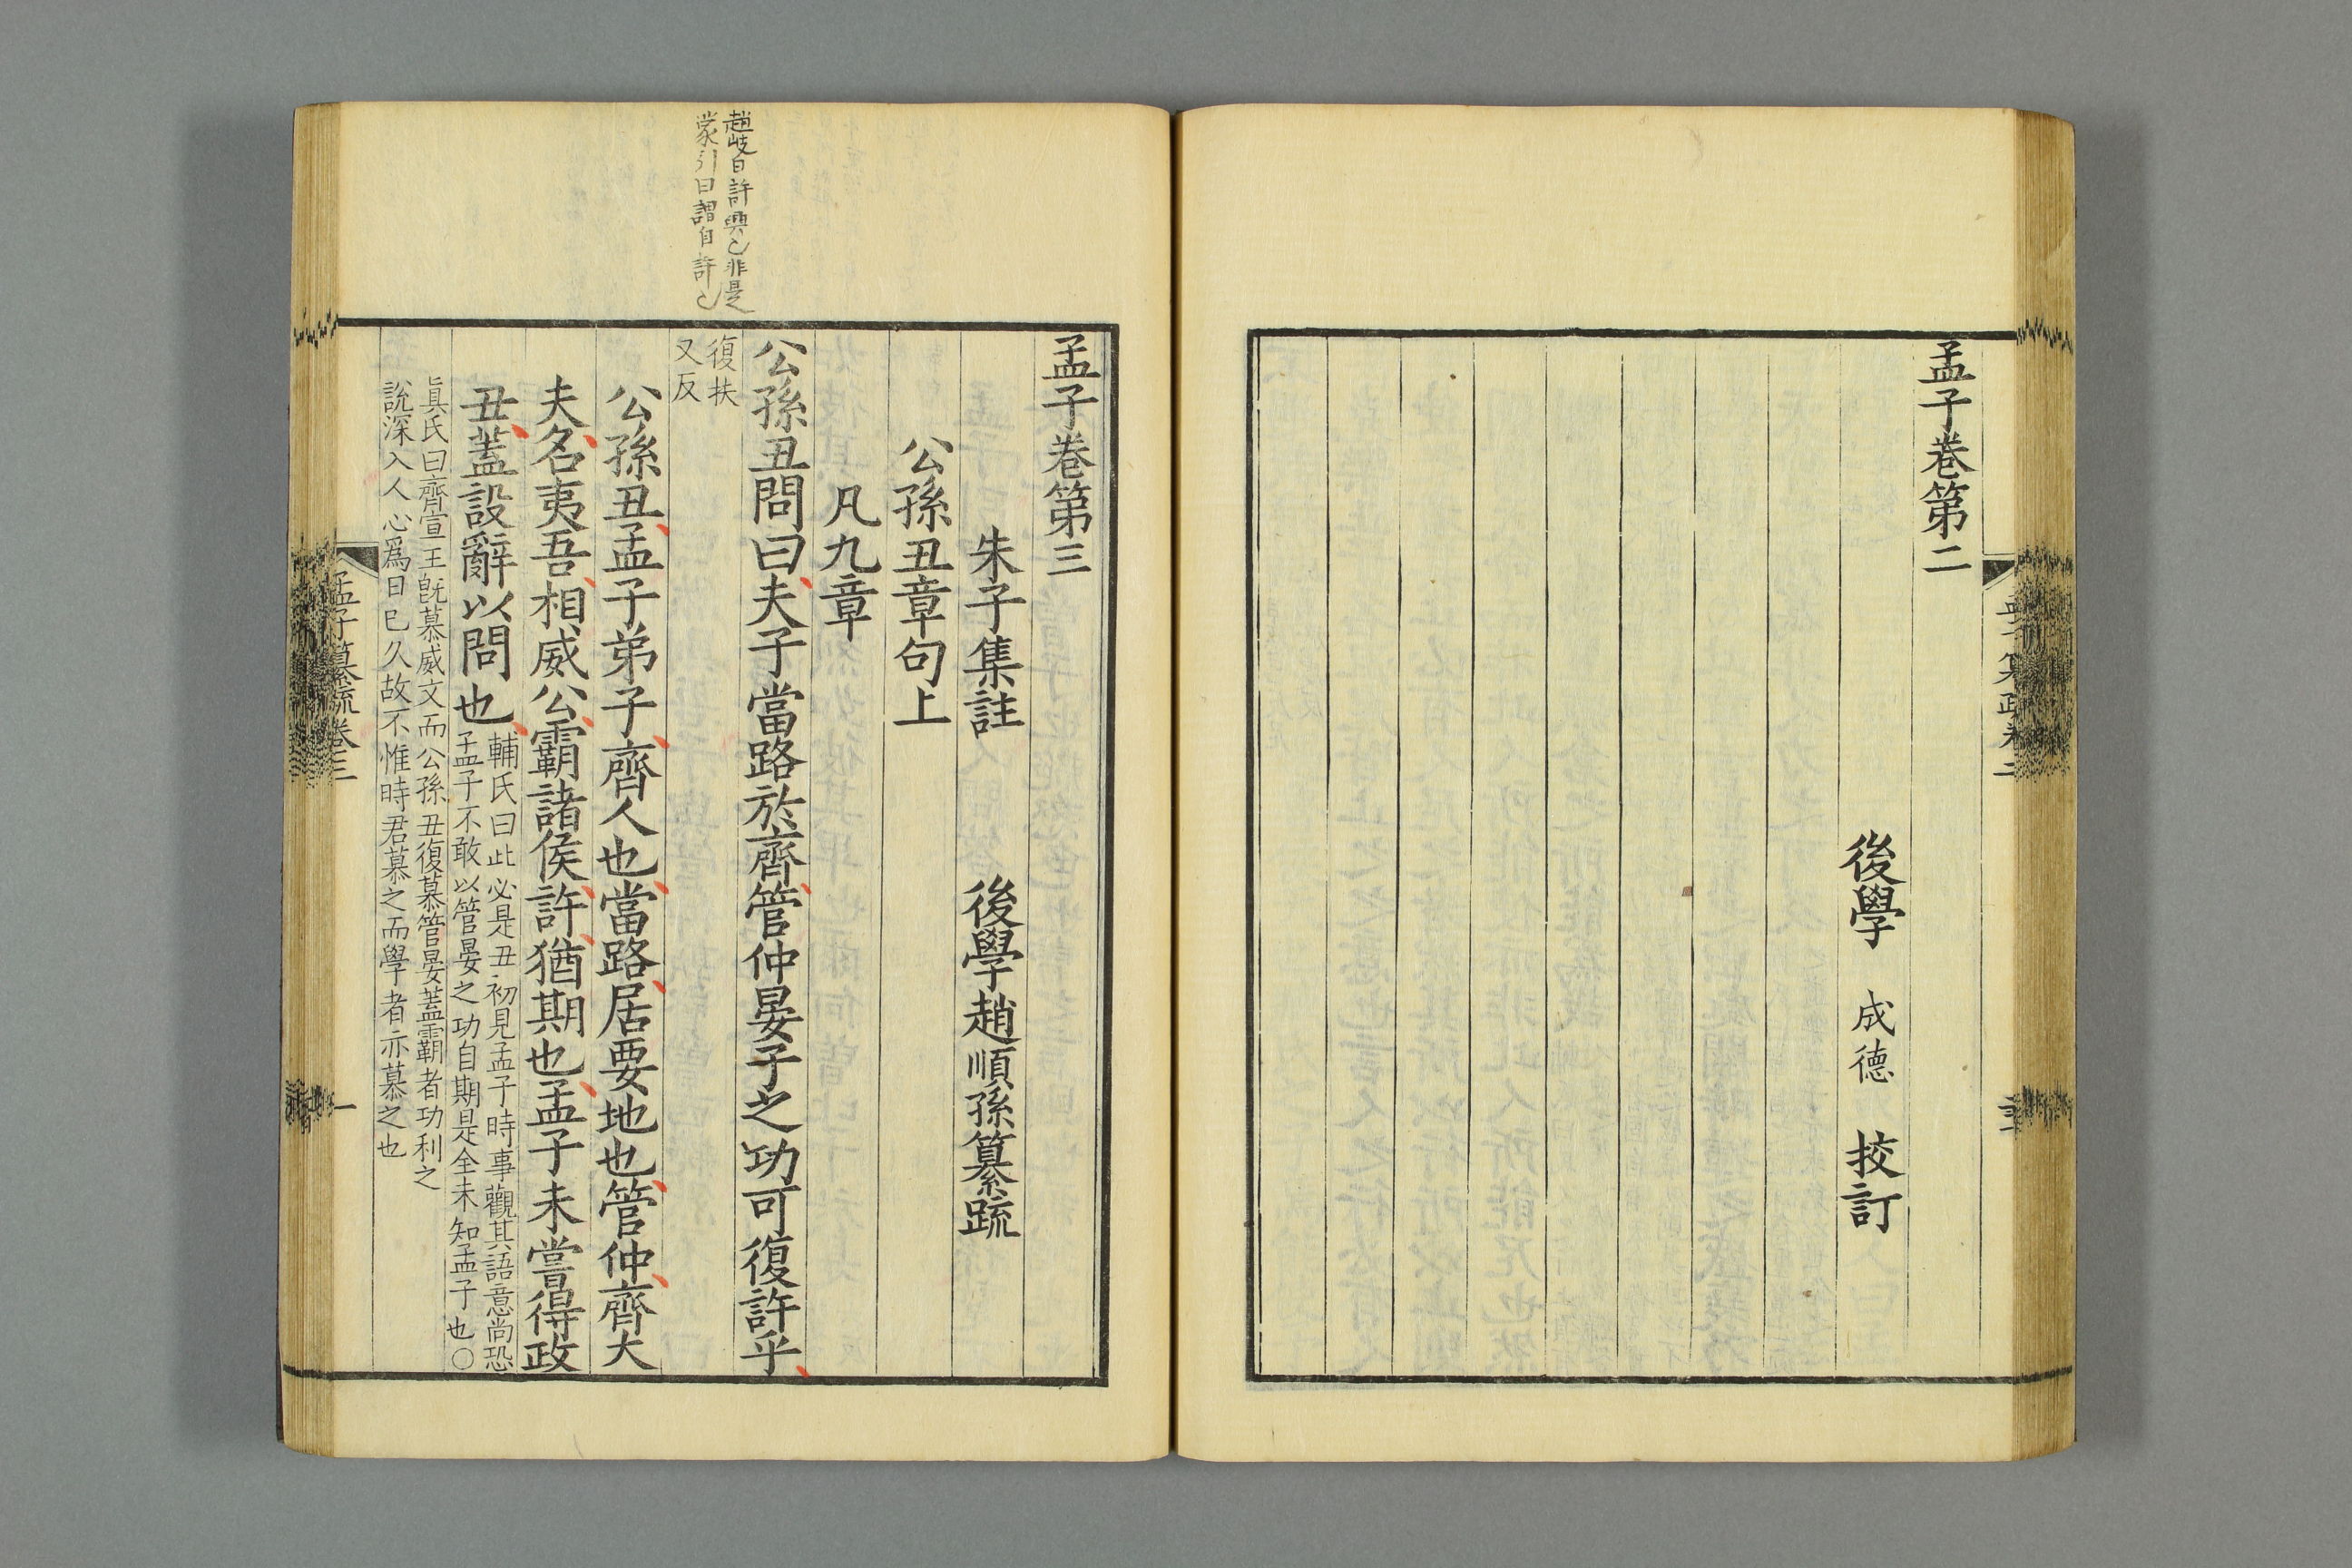 孟子卷第二
後學 成德 挍訂
趙岐曰許興也非是
蒙引曰謂自許也
孟子卷第三
朱子集註 後學趙順孫纂疏
公孫丑章句上
凡九章
公孫丑問曰夫子當路於齊管仲晏子之功可復許乎
復扶
又反
公孫丑孟子弟子齊人也當路居要地也管仲齊大
夫名夷吾相威公霸諸侯許猶期也孟子未嘗得政
丑蓋設辭以問也
輔氏曰此必是丑初見孟子時事觀其語意尚恐
孟子不敢以管晏之功自期是全未知孟子也〇
眞氏曰齊宣王旣慕威文而公孫丑復慕管晏蓋霸者功利之
說深入人心爲日已久故不惟時君慕之而學者亦慕之也
孟子纂疏卷三
一